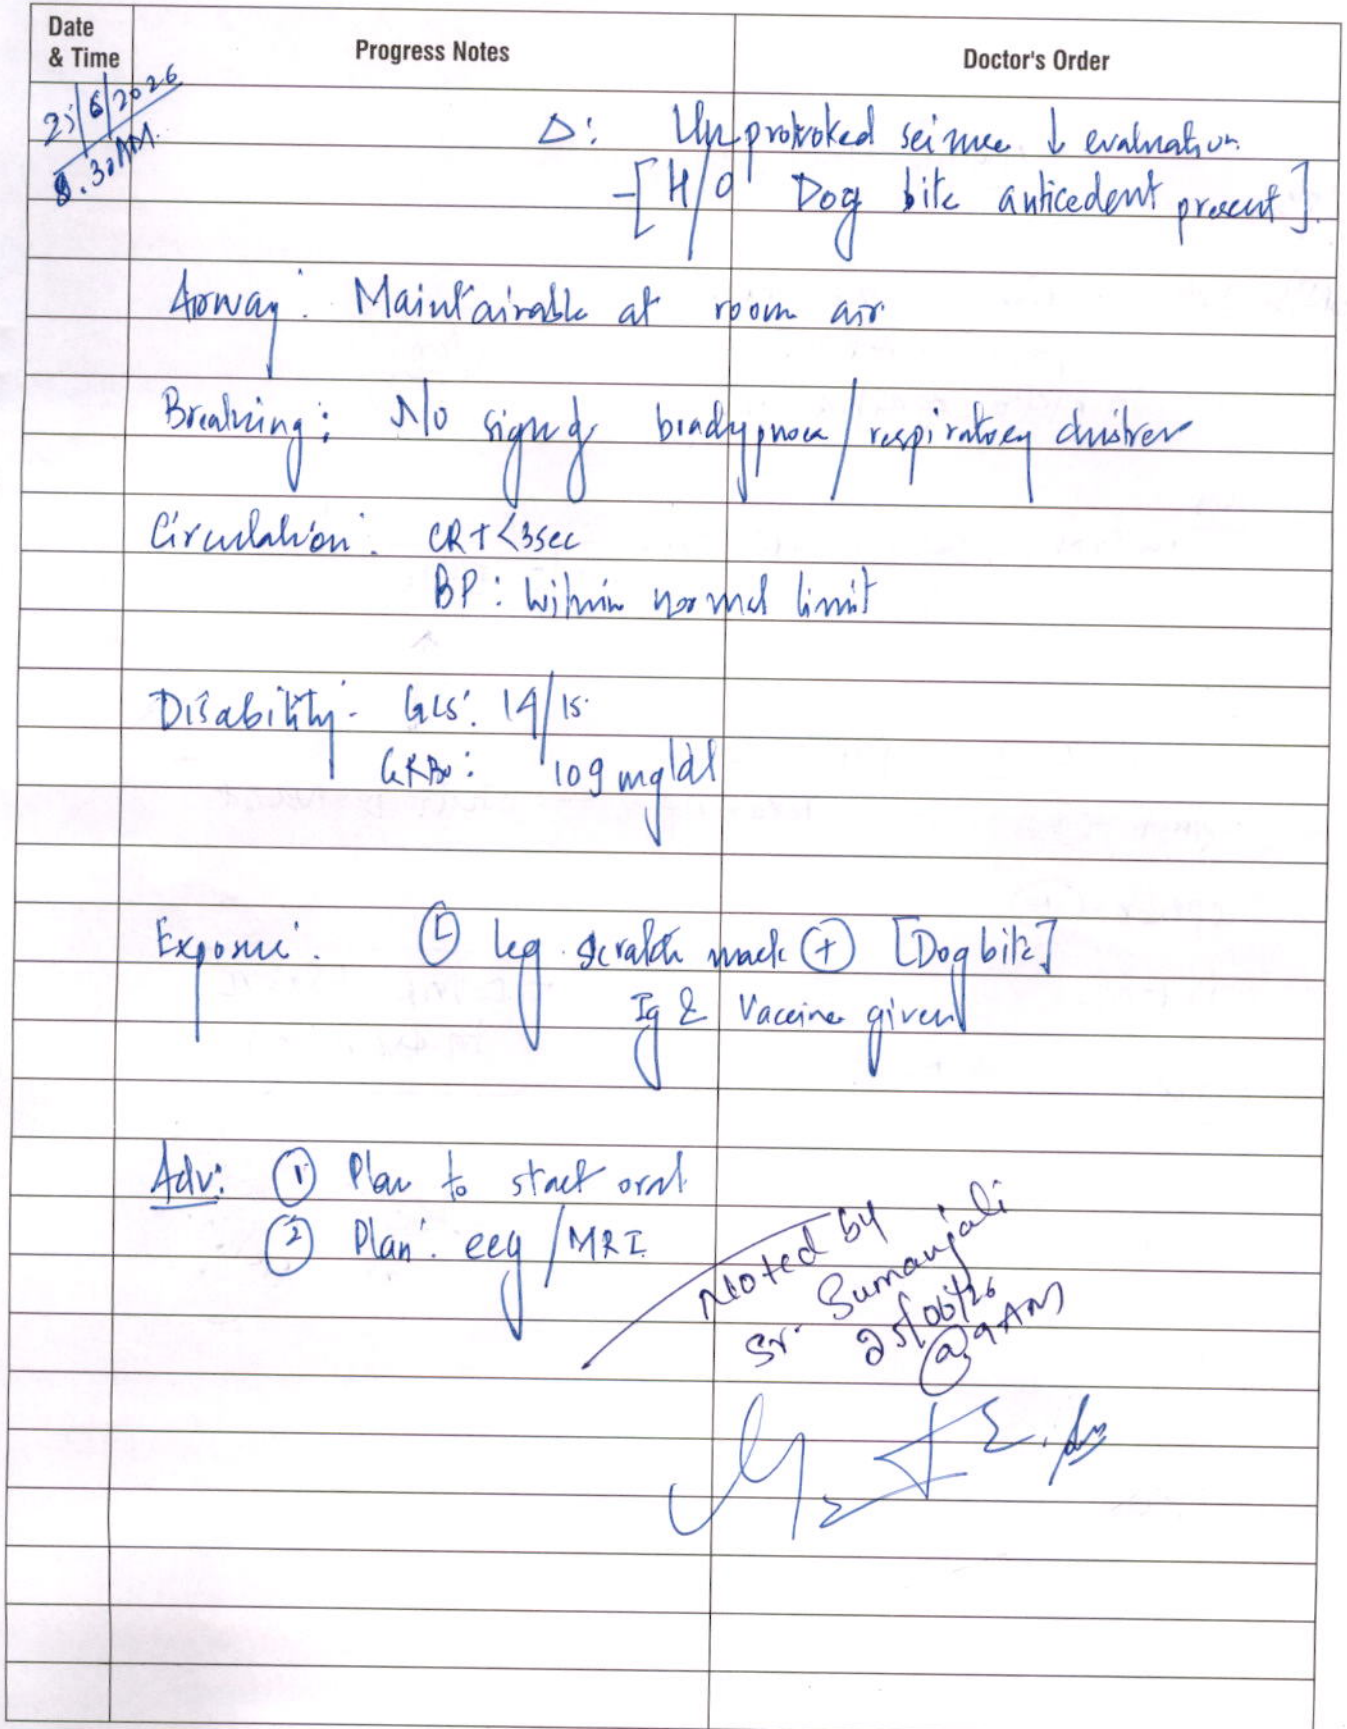 Date & Time
Progress Notes
Doctor's Order
25/6/2026
8.30AM.
Δ: Unprovoked seizure ↓ evaluation.
-[H/O Dog bite anticedent present].
Airway: Maintainable at room air
Breathing: No sign of bradypnoea / respiratory distress
Circulation: CRT <3sec
BP: Within normal limit
Disability: GCS: 14/15
GRBS: 109 mg/dl
Exposure: Ⓛ leg scratch mark ⊕ [Dog bite]
Ig & Vaccine given
Adv: ① Plan to start oral
② Plan: eeg / MRI
Noted by
Sr. Sumanjali
25/06/26
@ 9AM